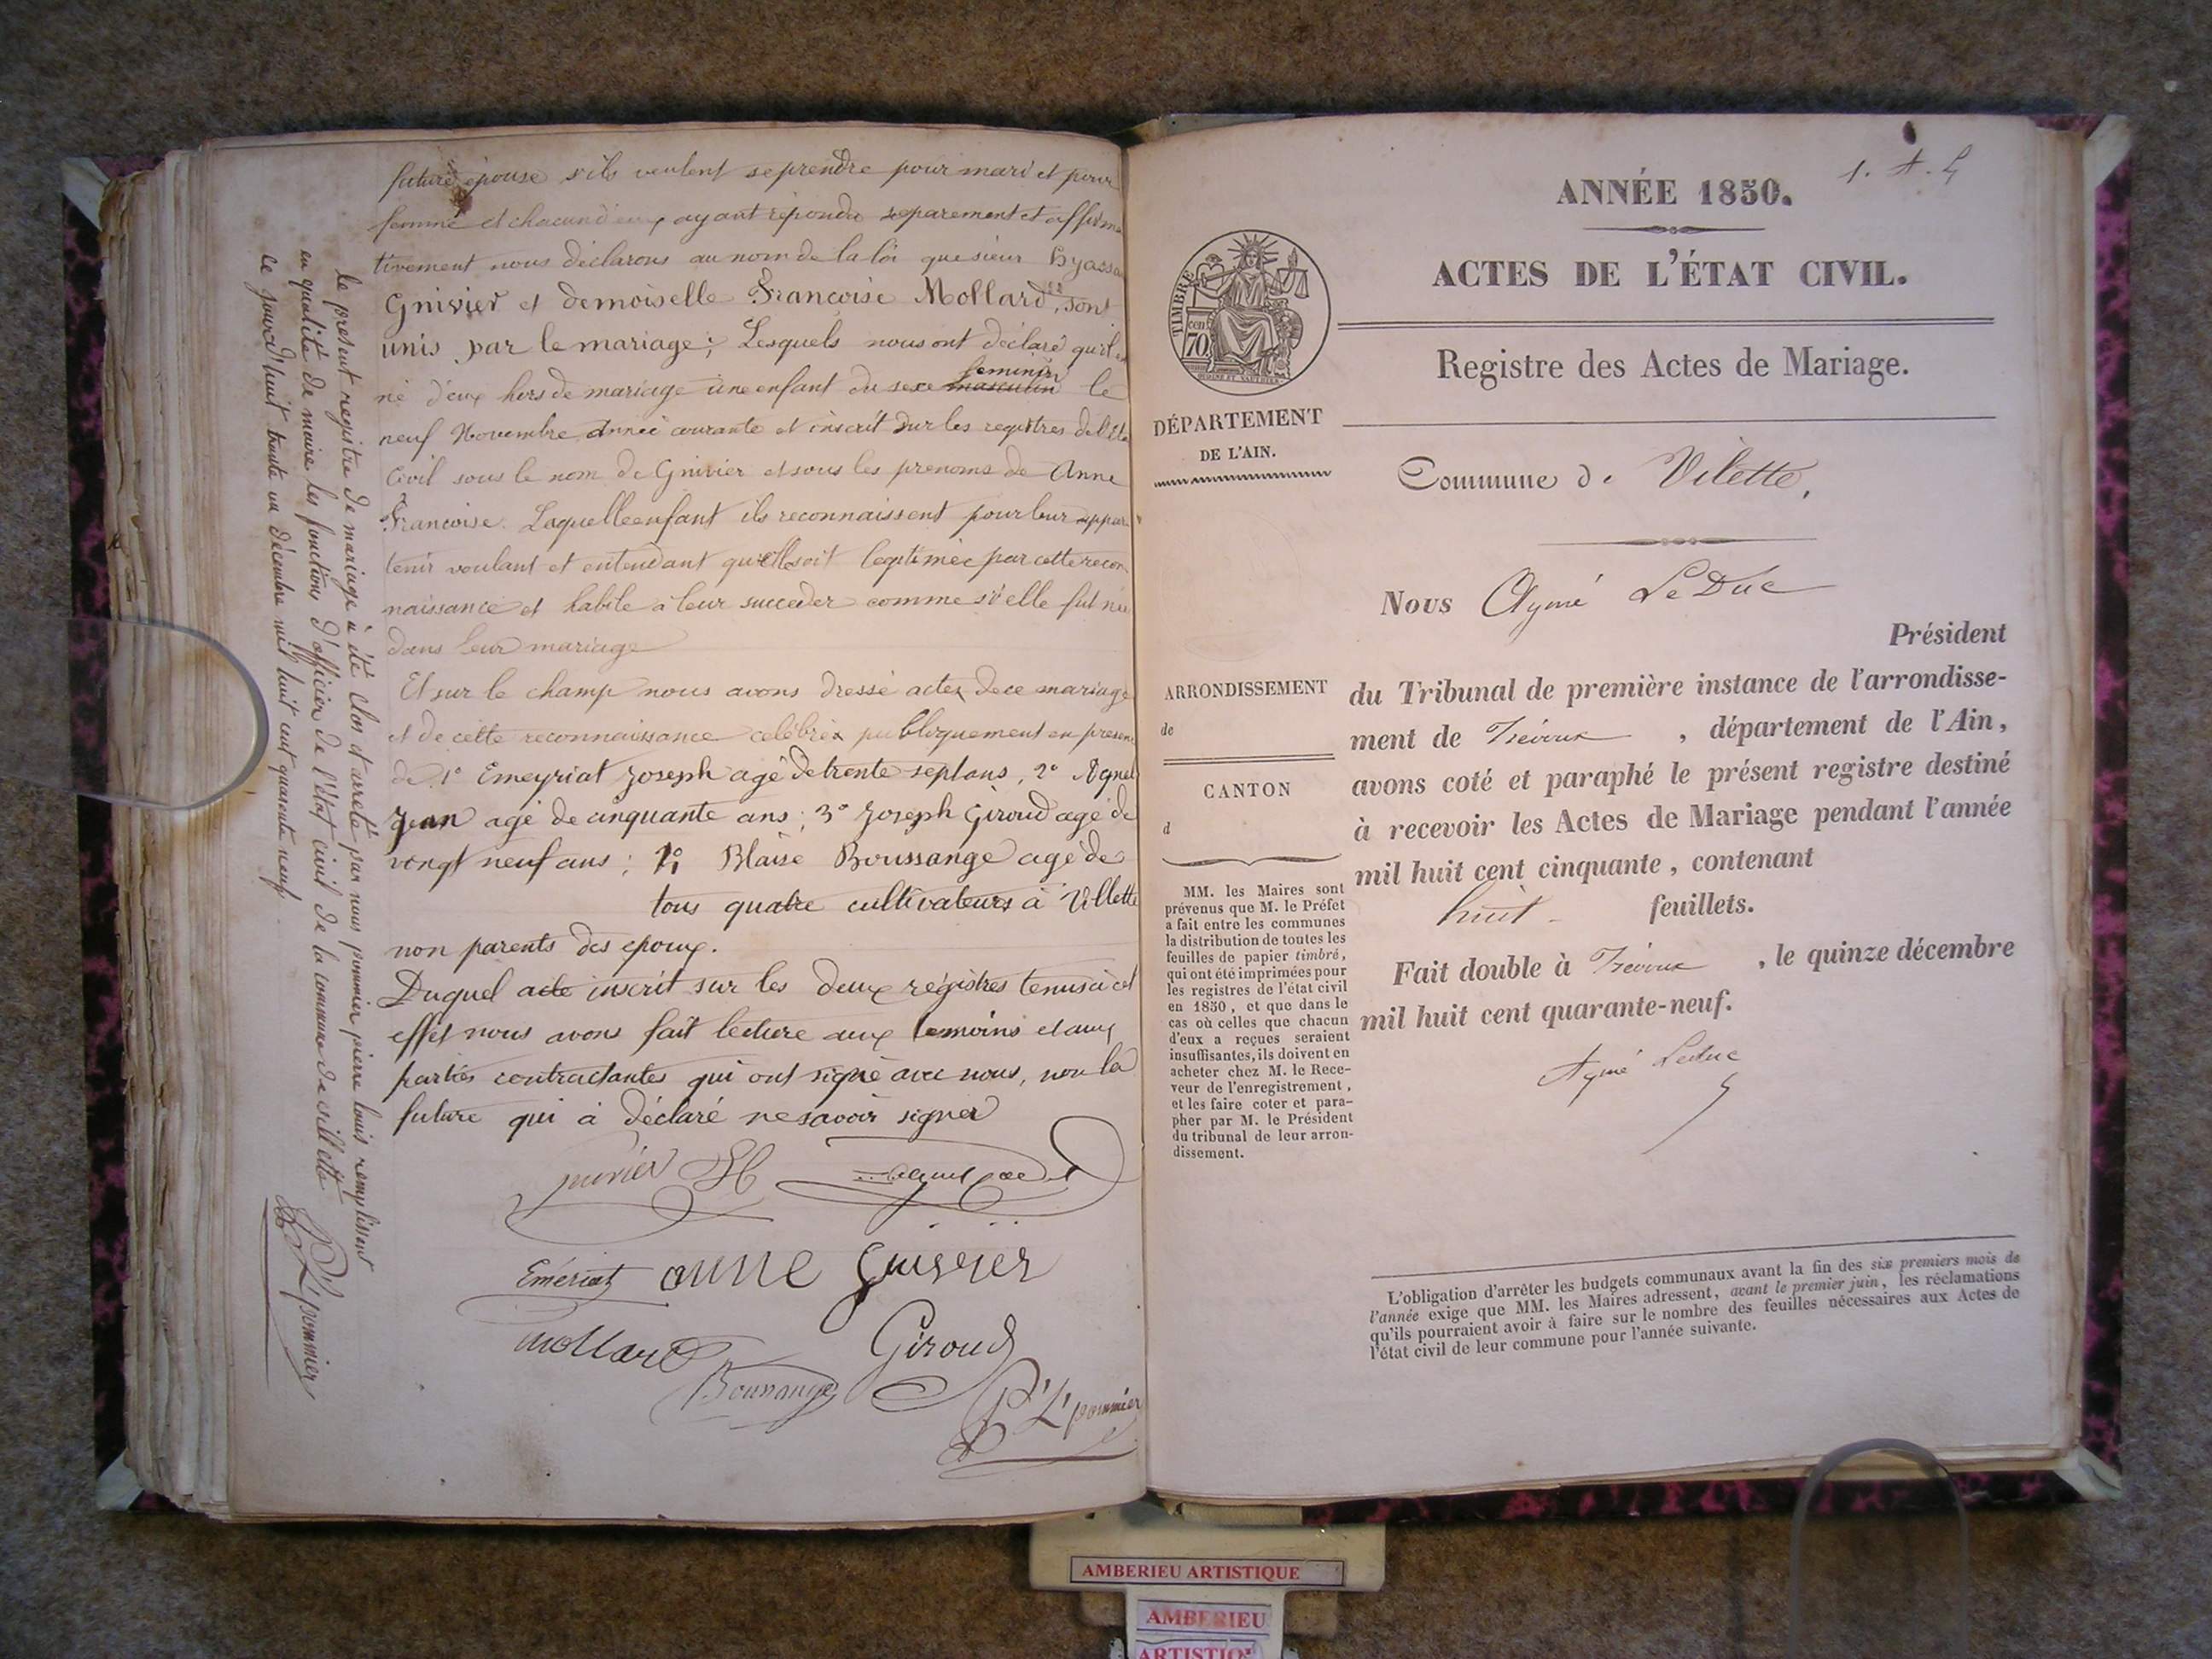 future épouse s'ils veulent se prendre pour mari et pour
femme et chacun d'eux ayant répondu separement et affirma
tivement nous déclarons au nom de la loi que sieur
Gnivier et demoiselle Françoise Mollard, sont
unis par le mariage; Lesquels nous ont déclaré qu'il
né d'eux hors de mariage une enfant du sexe masculin feminin le
neuf Novembre année courante et inscrit sur les registres de l'Eta
Civil sous le nom de Gnivier et sous les prenoms de Anne
Francoise. Laquelle enfant ils reconnaissent pour leur appar
tenir voulant et entendant qu'elle soit legitimée par cette recon
naissance et habile à leur succeder comme si elle fut née
dans leur mariage
Et sur le champ nous avons dressé acte de ce mariage
et de cette reconnaissance celébré publiquement en presen
de 1° Emeyriat Joseph agé de trente sept ans, 2° Agnel
Jean agé de cinquante ans; 3° Joseph Giroud agé de
vingt neuf ans; Blaise Boussange agé de
tous quatre cultivateurs à Villette
non parents des epoux.
Duquel acte inscrit sur les deux régistres tenus à cet
effet nous avons fait lecture aux temoins et aux
parties contractantes qui ont signé avec nous, non la
future qui à déclaré ne savoir signer
Emériat anne Guivier
Mollard Giroud
Boussange
P. L. pommier
le present registre de mariage à été clos et arreté par nous pommier pierre louis remplissent
en qualité de maire les fonctions d'officier de l'état civil de la commune de villette
ce jourd'huit trente un décembre mil huit cent quarante neuf.
P. L. pommier
1. A. L
ANNÉE 1850.
ACTES DE L'ÉTAT CIVIL.
Registre des Actes de Mariage.
TIMBRE
70 cen
DÉPARTEMENT
DE L'AIN.
Commune de Vilette,
Nous Aymé LeDuc
Président
du Tribunal de première instance de l'arrondisse-
ment de Trévoux , département de l'Ain,
avons coté et paraphé le présent registre destiné
à recevoir les Actes de Mariage pendant l'année
mil huit cent cinquante, contenant
huit feuillets.
Fait double à Trévoux , le quinze décembre
mil huit cent quarante-neuf.
Aymé Leduc
ARRONDISSEMENT
de
CANTON
d
MM. les Maires sont
prévenus que M. le Préfet
a fait entre les communes
la distribution de toutes les
feuilles de papier timbré,
qui ont été imprimées pour
les registres de l'état civil
en 1850, et que dans le
cas où celles que chacun
d'eux a reçues seraient
insuffisantes, ils doivent en
acheter chez M. le Rece-
veur de l'enregistrement,
et les faire coter et para-
pher par M. le Président
du tribunal de leur arron-
dissement.
L'obligation d'arrêter les budgets communaux avant la fin des six premiers mois de
l'année exige que MM. les Maires adressent, avant le premier juin, les réclamations
qu'ils pourraient avoir à faire sur le nombre des feuilles nécessaires aux Actes de
l'état civil de leur commune pour l'année suivante.
AMBERIEU ARTISTIQUE
AMBERIEU
ARTISTIQ